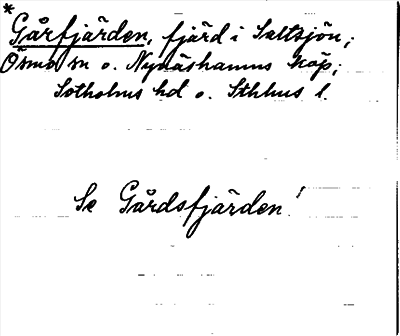 *
Gårfjärden, fjärd i Saltsjön;
Ösmo sn o. Nynäshamns köp;
Sotholms hd o. Sthlms l.
Se Gårdsfjärden!